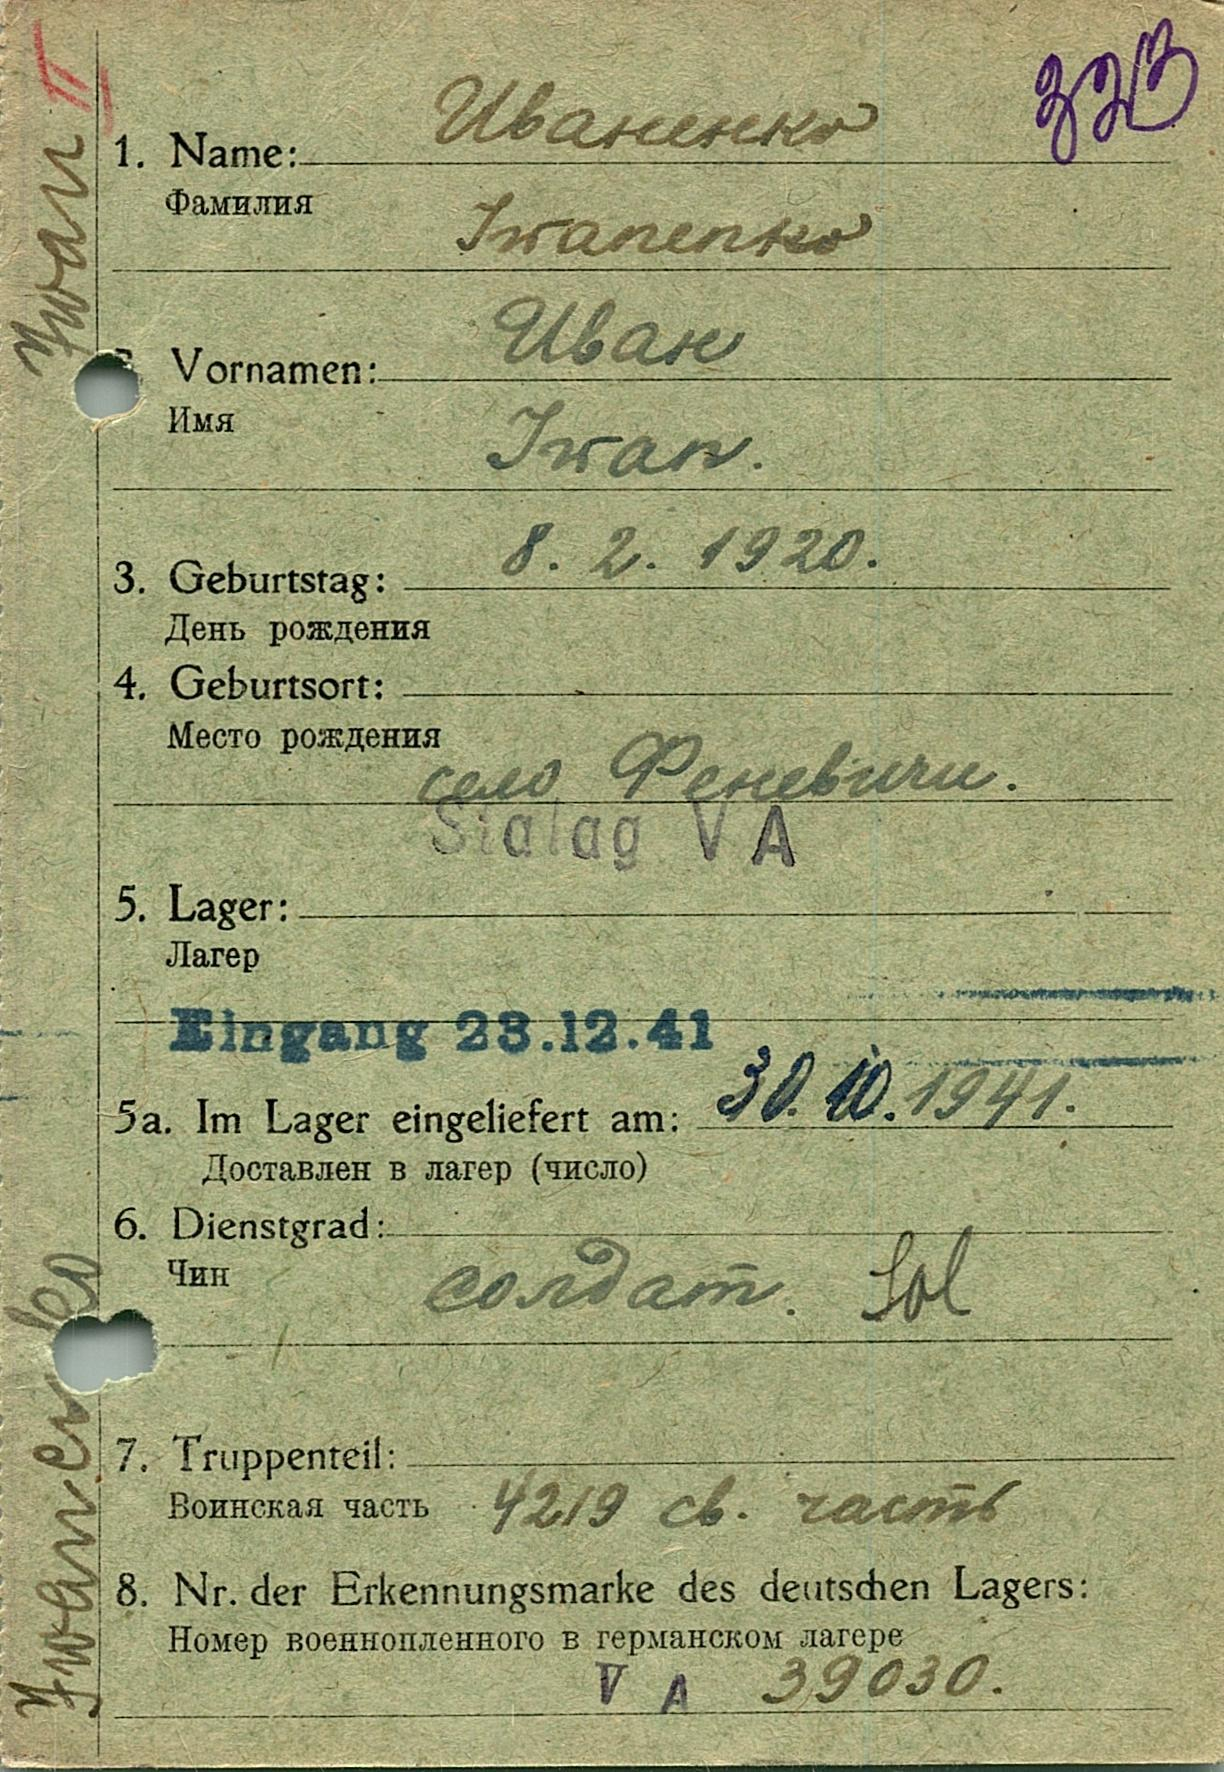 II
Иваненко
1. Name:
Фамилия
Iwanenko
Иван
Vornamen:
Имя
Iwan.
8. 2. 1920.
3. Geburtstag:
День рождения
4. Geburtsort:
Место рождения
село Феневичи.
Stalag V A
5. Lager:
Лагер
Eingang 23.12.41
5a. Im Lager eingeliefert am: 30.10.1941.
Доставлен в лагер (число)
6. Dienstgrad:
Чин
солдат. Sol
7. Truppenteil:
Воинская часть 4219 св. часть
8. Nr. der Erkennungsmarke des deutschen Lagers:
Номер военнопленного в германском лагере
V A 39030.
Iwanenko Iwan